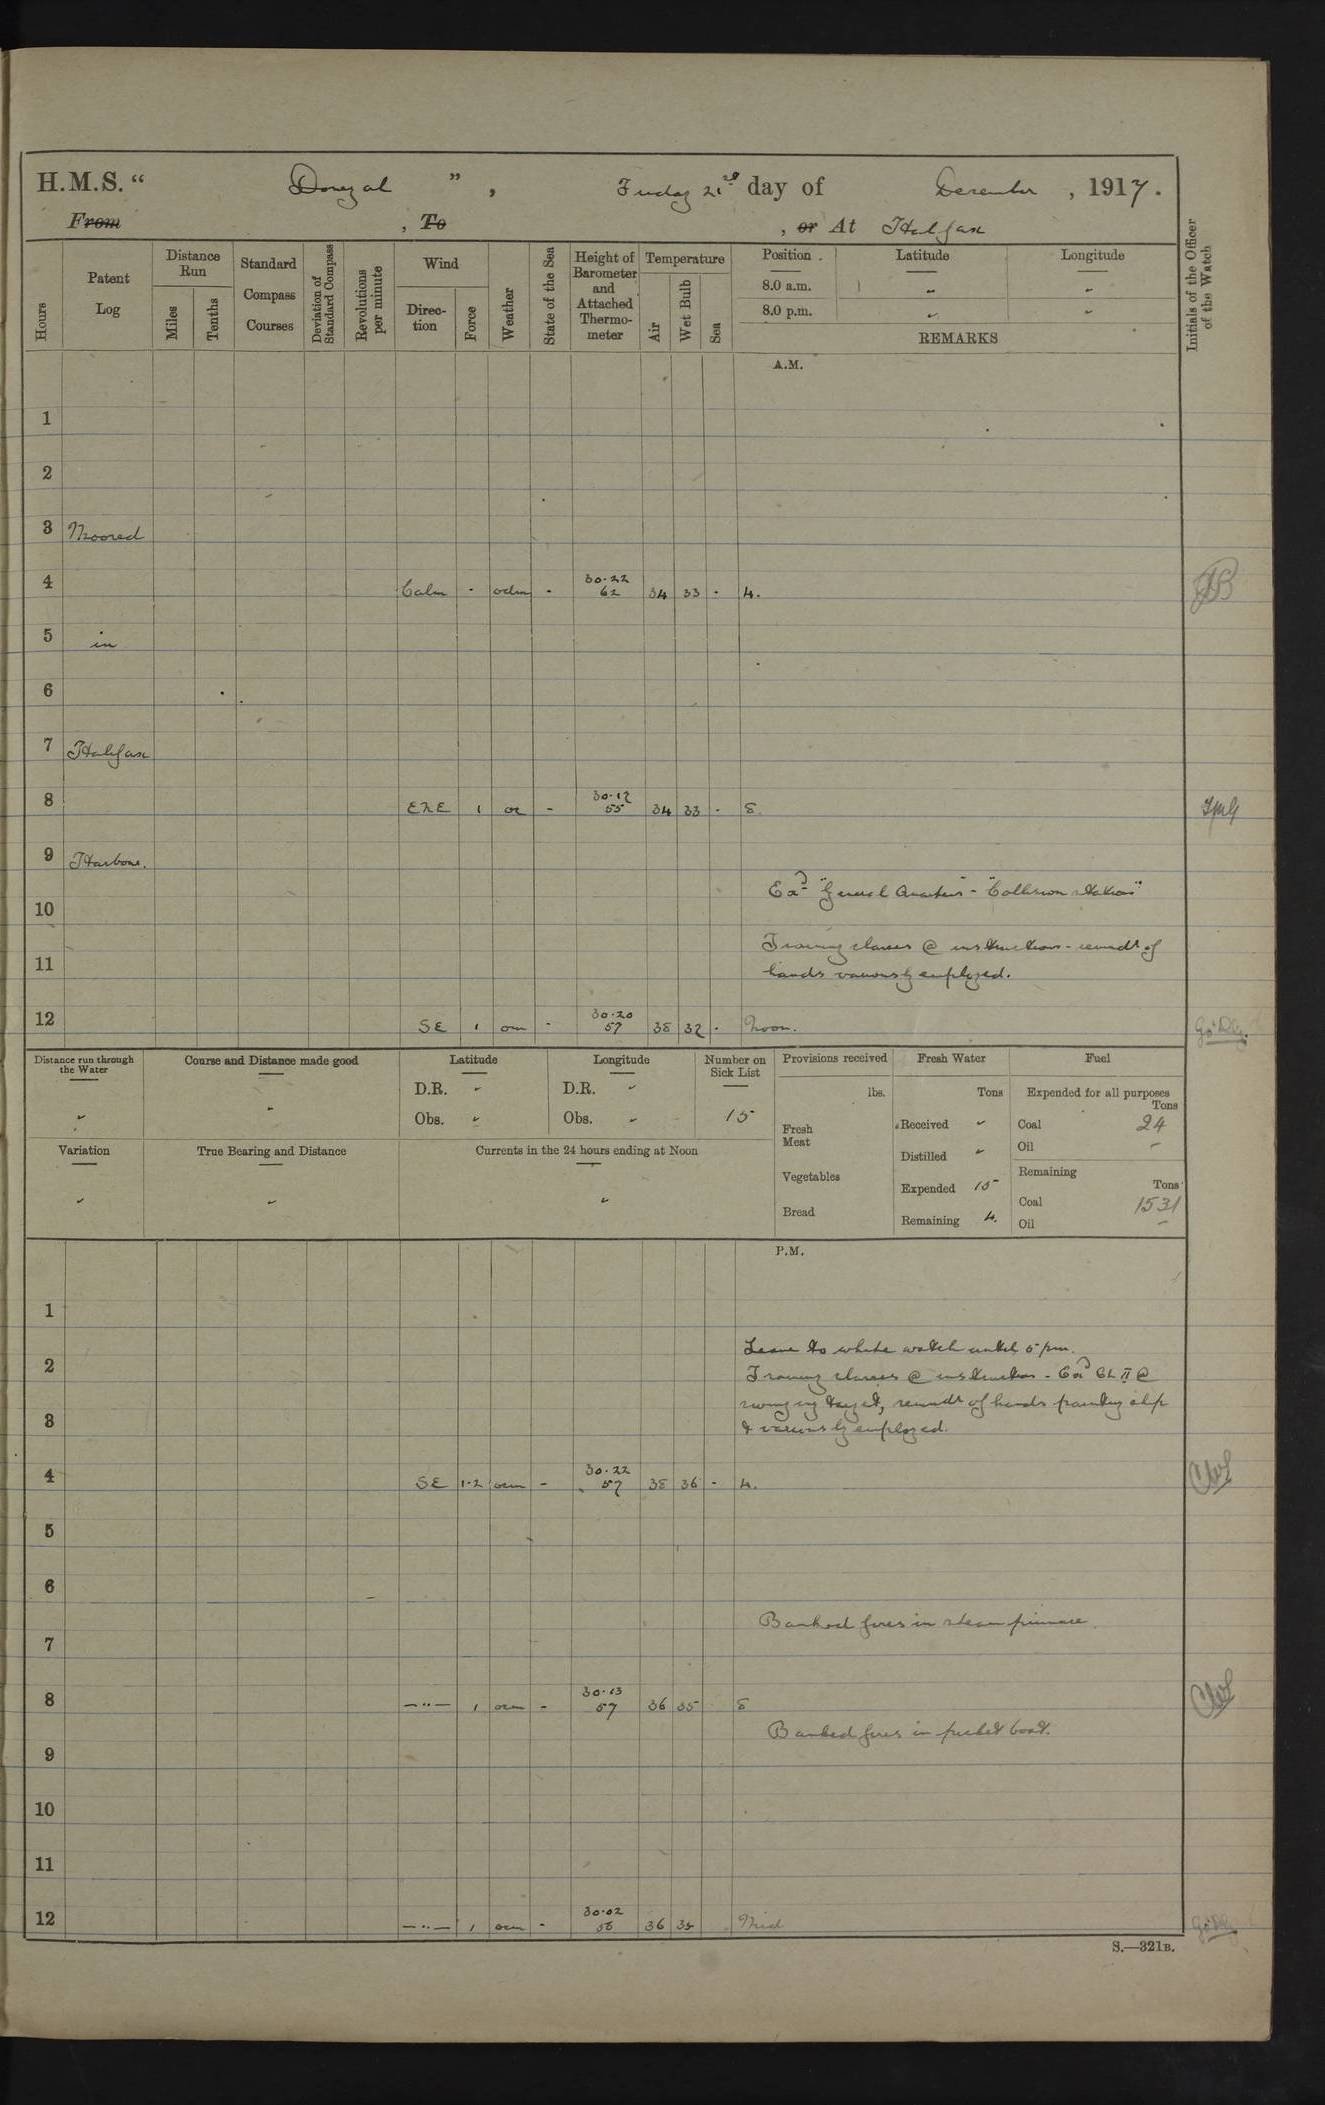 H.M.S. " Donegal ", Friday 21st day of December, 1917.
From , To , or At Halifax
Hours
Patent Log
Distance Run
Miles
Tenths
Standard Compass Courses
Deviation of Standard Compass
Revolutions per minute
Wind
Direction
Force
Weather
State of the Sea
Height of Barometer and Attached Thermometer
Temperature
Air
Wet Bulb
Sea
Position Latitude Longitude
8.0 a.m. " "
8.0 p.m. " "
REMARKS
Initials of the Officer of the Watch
A.M.
1
2
3 Moored
4 Calm - odm - 30.22 62 34 33 - 4.
5 in
6
7 Halifax
8 ENE 1 oc - 30.12 55 34 33 - 8.
9 Harbour.
Exd "General Quarters" - "Collision stations"
10
Training classes @ instruction - remdr of
11
hands variously employed.
12 SE 1 om - 30.20 57 38 37 - Noon.
Distance run through the Water
Course and Distance made good
Latitude
D.R. "
Obs. "
Longitude
D.R. "
Obs. "
Number on Sick List
15
Variation
True Bearing and Distance
Currents in the 24 hours ending at Noon
Provisions received
lbs.
Fresh Meat
Vegetables
Bread
Fresh Water
Tons
Received "
Distilled "
Expended 15
Remaining 4.
Fuel
Expended for all purposes
Tons
Coal 24
Oil -
Remaining
Tons
Coal 1531
Oil -
P.M.
1
Leave to white watch until 5 pm.
2
Training classes @ instruction - Exd CL II @
swinging target, remdr of hands painting ship
3
& variously employed.
4 SE 1-2 ocm - 30.22 57 38 36 - 4.
5
6
Banked fires in steam pinnace.
7
8 —"— 1 ocm - 30.13 57 36 35 8
Banked fires in picket boat.
9
10
11
12 —"— 1 ocm - 30.02 56 36 35 Mid
S.—321B.